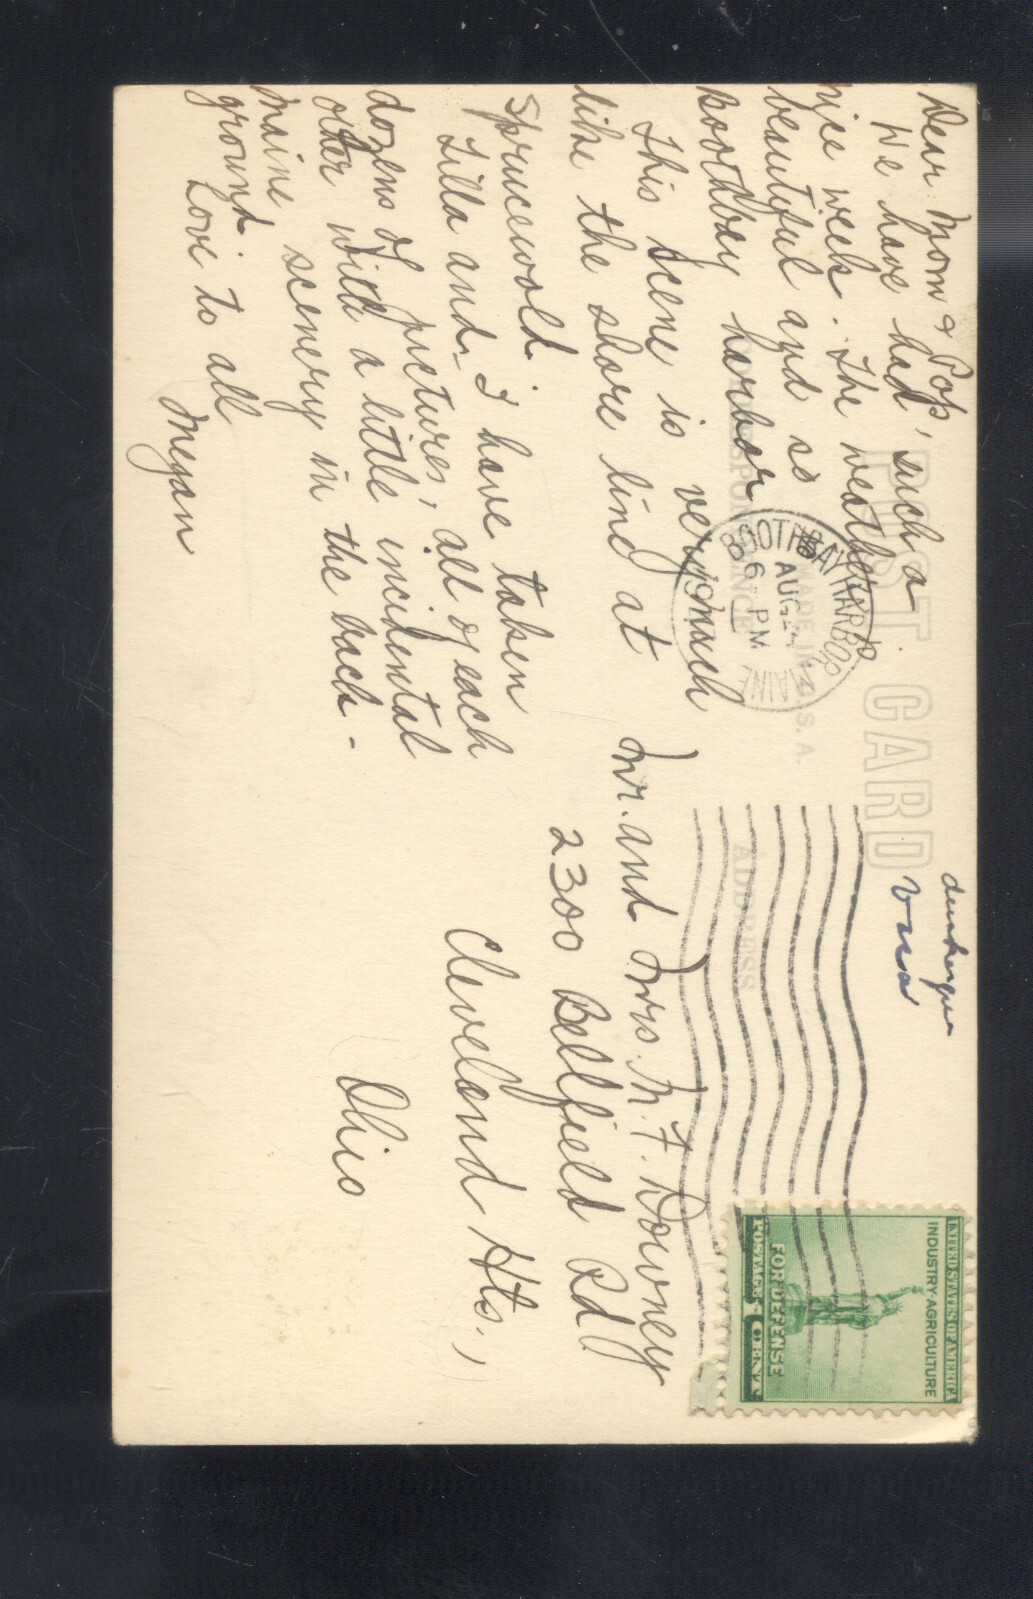 POST CARD
CORRESPONDENCE
MADE IN U.S.A.
ADDRESS
Dear Mom & Pop,
We have had such a
nice week. The weather is
beautiful and so
Boothbay harbor
This scene is very much
like the shore line at
Sprucewold.
Lilla and I have taken
dozens of pictures, all of each
other with a little incidental
Maine scenery in the back-
ground.
Love to all
Megan
BOOTHBAY HARBOR
AUG
6 PM
MAINE
Mr. and Mrs. M. F. Downey
2300 Bellfield Rd
Cleveland Hts.,
Ohio
UNITED STATES OF AMERICA
INDUSTRY·AGRICULTURE
FOR DEFENSE
POSTAGE 1 CENT